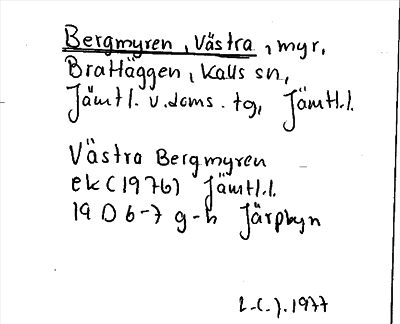 Bergmyren, Västra, myr,
Brattäggen, Kalls sn,
Jämtl. v. doms. tg, Jämtl.l.
Västra Bergmyren
ek (1976) Jämtl.l.
19 D 6-7 g-h Järpbyn
L-C.J. 1977